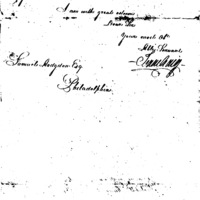 I am with great esteem
Dear Sir
Your most Ob.
Servant
Samuel Hodgdon Esq
Philadelphia